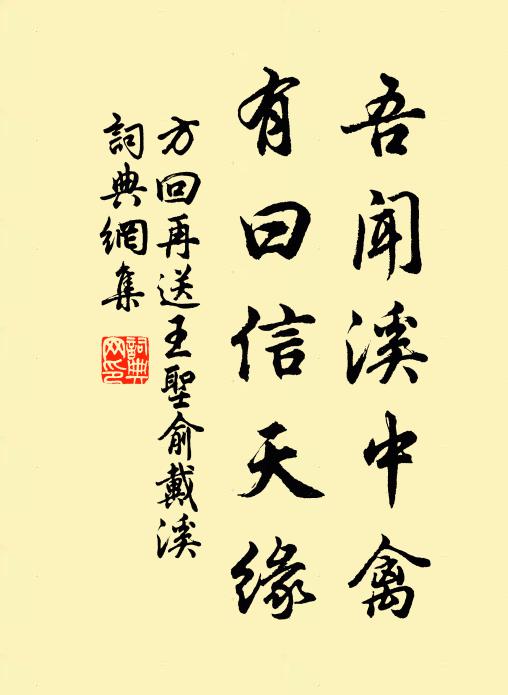 吾聞溪中禽
有曰信天缘
方回再送王聖俞戴溪
詞典網集
詞典網印